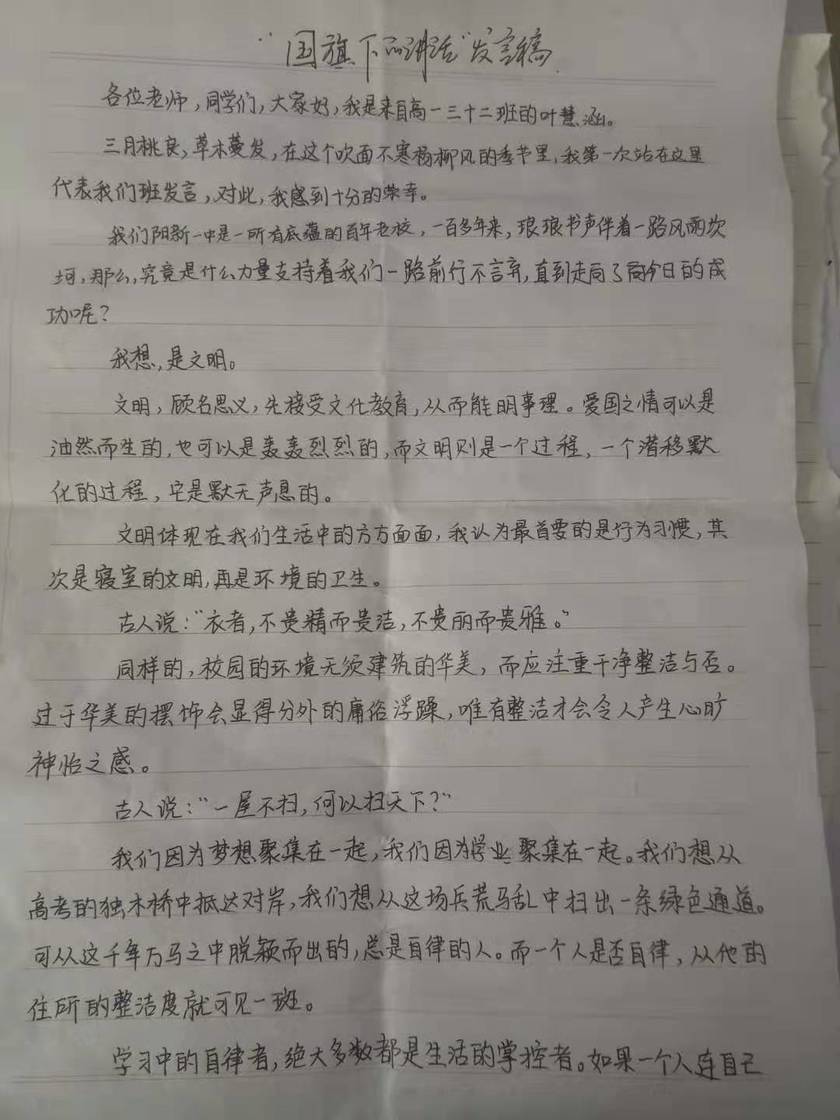 “国旗下的讲话”发言稿
各位老师，同学们，大家好，我是来自高一三十二班的叶慧涵。
三月桃良，草木蔓发，在这个吹面不寒杨柳风的季节里，我第一次站在这里
代表我们班发言，对此，我感到十分的荣幸。
我们阳新一中是一所有底蕴的百年老校，一百多年来，琅琅书声伴着一路风雨坎
坷，那么，究竟是什么力量支持着我们一路前行不言弃，直到走向了今日的成
功呢？
我想，是文明。
文明，顾名思义，先接受文化教育，从而能明事理。爱国之情可以是
油然而生的，也可以是轰轰烈烈的，而文明则是一个过程，一个潜移默
化的过程，它是默无声息的。
文明体现在我们生活中的方方面面，我认为最首要的是行为习惯，其
次是寝室的文明，再是环境的卫生。
古人说：“衣者，不贵精而贵洁，不贵丽而贵雅。”
同样的，校园的环境无须建筑的华美，而应注重干净整洁与否。
过于华美的摆饰会显得分外的庸俗浮躁，唯有整洁才会令人产生心旷
神怡之感。
古人说：“一屋不扫，何以扫天下？”
我们因为梦想聚集在一起，我们因为学业聚集在一起。我们想从
高考的独木桥中抵达对岸，我们想从这场兵荒马乱中扫出一条绿色通道。
可从这千军万马之中脱颖而出的，总是自律的人。而一个人是否自律，从他的
住所的整洁度就可见一斑。
学习中的自律者，绝大多数都是生活的掌控者。如果一个人连自己